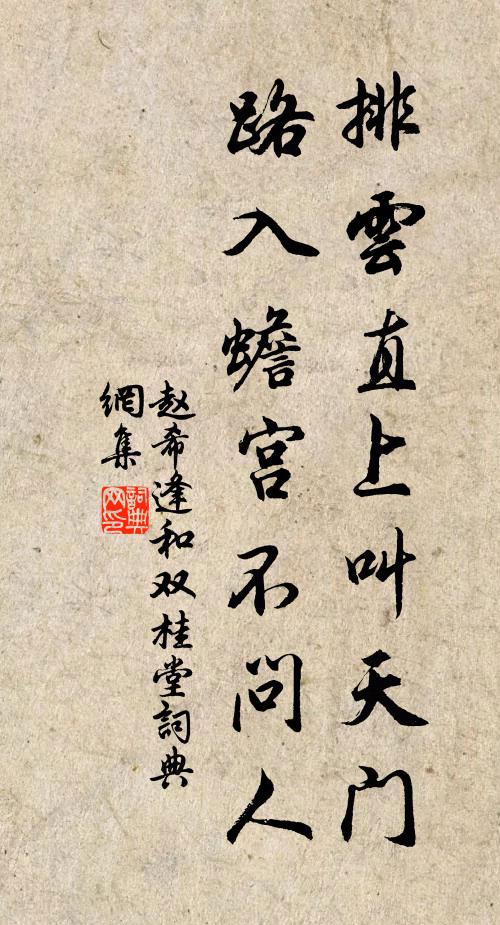 排雲直上叫天门
路入蟾宫不問人
赵希逢和双桂堂詞典
網集
詞典
网印